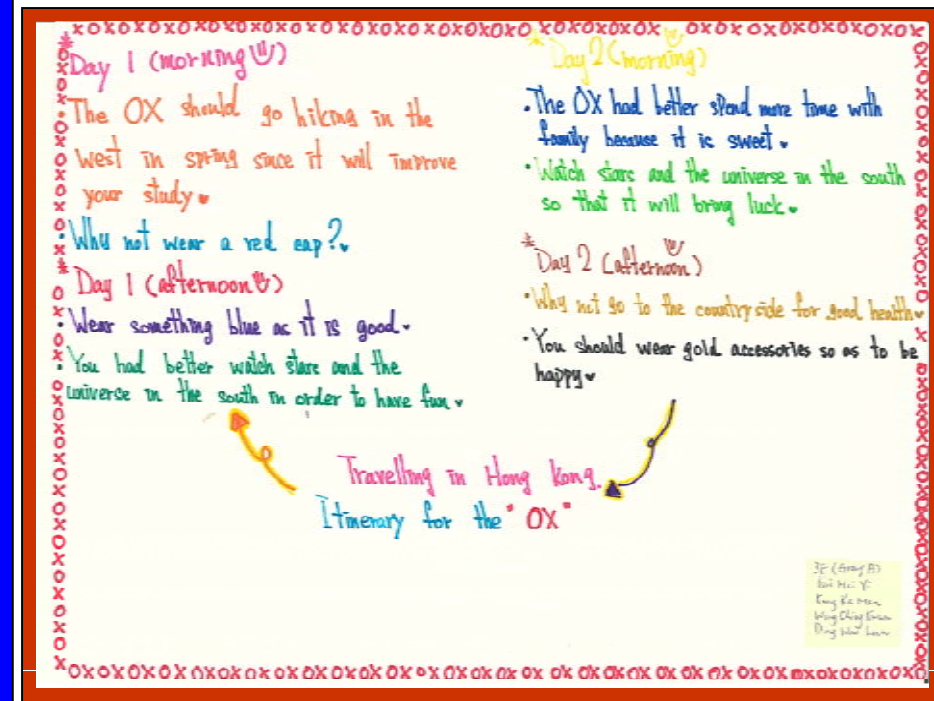 XOXOXOXOXOXOXOXOXOXOXOXOXOXO XOXOXOXOX OXOXOXOXOXOXOX
* Day 1 (morning)
• The OX should go hiking in the
west in spring since it will improve
your study.
• Why not wear a red cap?
* Day 1 (afternoon)
• Wear something blue as it is good.
• You had better watch stars and the
universe in the south in order to have fun.
* Day 2 (morning)
• The OX had better spend more time with
family because it is sweet.
• Watch stars and the universe in the south
so that it will bring luck.
* Day 2 (afternoon)
• Why not go to the countryside for good health.
• You should wear gold accessories so as to be
happy
Travelling in Hong Kong.
Itinerary for the "OX"
3E (Group A)